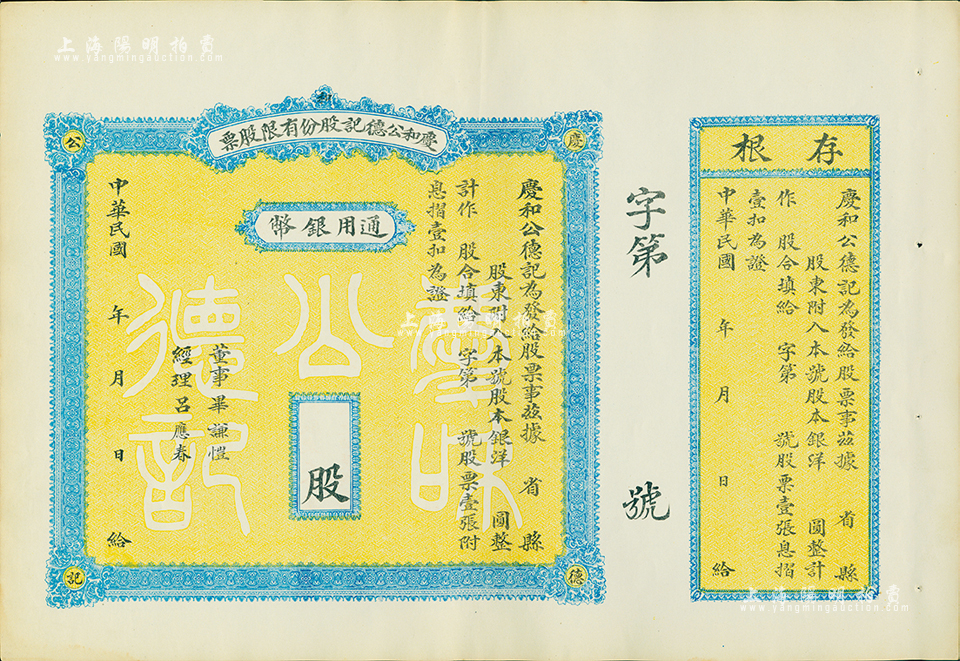 上海陽明拍賣
www.yangmingauction.com
慶和公德記股份有限股票
慶
公
德
記
通用銀幣
慶和公德記為發給股票事茲據 省 縣
股東附入本號股本銀洋 圓整
計作 股合填給 字第 號股票壹張附
息摺壹扣為證
股
董事畢謙愷
經理呂應春
中華民國 年 月 日 給
慶和
公
德記
字第 號
存根
慶和公德記為發給股票事茲據 省 縣
股東附入本號股本銀洋 圓整計
作 股合填給 字第 號股票壹張息摺
壹扣為證
中華民國 年 月 日 給
上海陽明拍賣
www.yangmingauction.com
上海陽明拍賣
www.yangmingauction.com